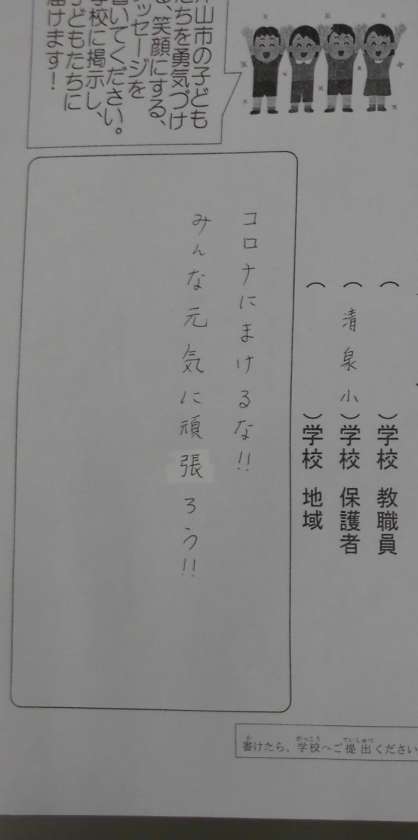 山市の子ども
たちを勇気づけ
る、笑顔にする、
メッセージを
書いてください。
学校に掲示し、
子どもたちに
届けます！
（　　　）学校 教職員
（清泉小）学校 保護者
（　　　）学校 地域
コロナにまけるな!!
みんな元気に頑張ろう!!
書けたら、学校へご提出ください